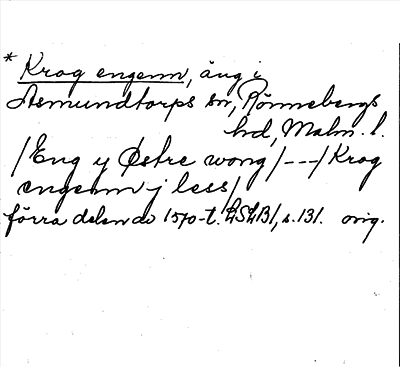 * Krog engenn, äng i
Asmundtorps sn, Rönnebergs
hd, Malm. l.
/Eng y Østre wong/---/Krog
engenn j less/
förra delen av 1570-t. LSLB1, s. 131. orig.